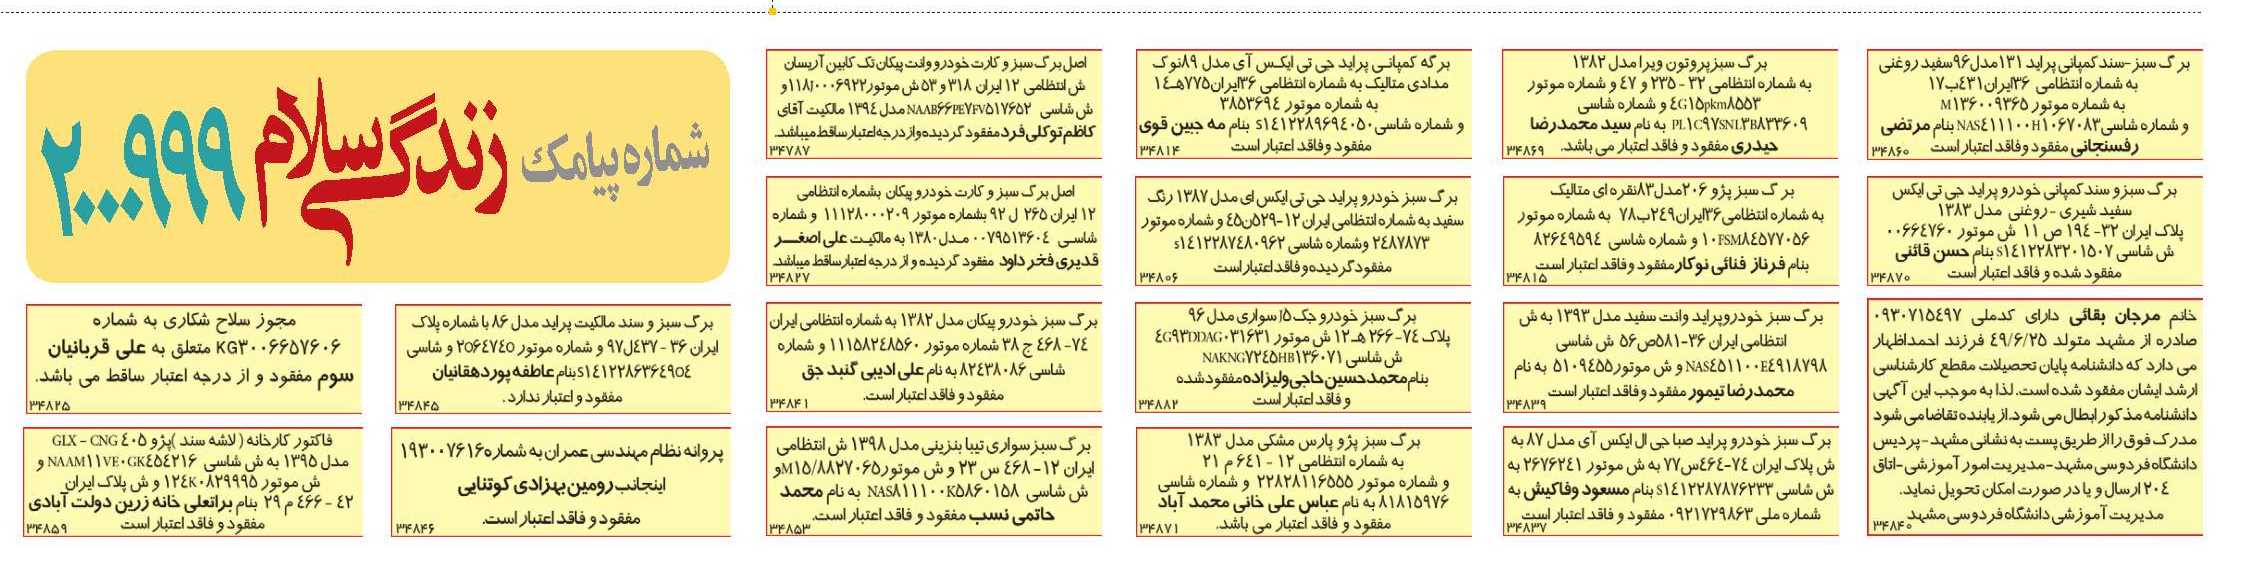 برگ سبز-سند کمپانی پراید ۱۳۱مدل۹۶سفید روغنی
به شماره انتظامی ۳۶ایران۴۳۱ب۱۷
به شماره موتور M۱۳۶۰۰۹۳۶۵
و شماره شاسی NAS۴۱۱۱۰۰H۱۰۶۷۰۸۳ بنام مرتضی
رفسنجانی مفقود وفاقد اعتبار است
۳۴۸۶۰
برگ سبزو سند کمپانی خودرو پراید جی تی ایکس
سفید شیری - روغنی مدل ۱۳۸۳
پلاک ایران ۳۲- ۱۹۴ ص ۱۱ ش موتور ۰۰۶۶۴۷۶۰
ش شاسی S۱۴۱۲۲۸۳۲۰۱۵۰۷ بنام حسن قائنی
مفقود شده و فاقد اعتبار است
۳۴۸۷۰
خانم مرجان بقائی دارای کدملی ۰۹۳۰۷۱۵۴۹۷
صادره از مشهد متولد ۴۹/۶/۲۵ فرزند احمداظهار
می دارد که دانشنامه پایان تحصیلات مقطع کارشناسی
ارشد ایشان مفقود شده است. لذا به موجب این آگهی
دانشنامه مذکور ابطال می شود.از یابنده تقاضا می شود
مدرک فوق رااز طریق پست به نشانی مشهد-پردیس
دانشگاه فردوسی مشهد-مدیریت امور آموزشی-اتاق
۲۰۴ ارسال و یا در صورت امکان تحویل نماید.
مدیریت آموزشی دانشگاه فردوسی مشهد
۳۴۸۴۰
برگ سبزپروتون ویرا مدل ۱۳۸۲
به شماره انتظامی ۳۲ - ۲۳۵ و ۴۷ و شماره موتور
۴G۱۵pkm۸۵۵۳ و شماره شاسی
PL۱C۹۷SNL۳B۸۳۳۶۰۹ به نام سید محمدرضا
حیدری مفقود و فاقد اعتبار می باشد.
۳۴۸۶۹
برگ سبز پژو ۲۰۶مدل۸۳نقره ای متالیک
به شماره انتظامی۳۶ایران۲۴۹ب۷۸ به شماره موتور
۱۰FSM۸۴۵۷۷۰۵۶ و شماره شاسی ۸۲۶۴۹۵۹۴
بنام فرناز فنائی نوکار مفقود وفاقد اعتبار است
۳۴۸۱۵
برگ سبز خودروپراید وانت سفید مدل ۱۳۹۳ به ش
انتظامی ایران ۳۶-۵۸۱ص۵۶ ش شاسی
NAS۴۵۱۱۰۰E۴۹۱۸۷۹۸ و ش موتور۵۱۰۹۴۵۵ به نام
محمدرضا تیمور مفقود وفاقد اعتبار است
۳۴۸۳۹
برگ سبز خودرو پراید صبا جی ال ایکس آی مدل ۸۷ به
ش پلاک ایران ۷۴-۴۶۴س۷۷ به ش موتور ۲۶۷۶۲۴۱ به
ش شاسی S۱۴۱۲۲۸۷۸۷۶۲۳۳ بنام مسعود وفاکیش به
شماره ملی ۰۹۲۱۷۲۹۸۶۳ مفقود و فاقد اعتبار است
۳۴۸۳۷
برگه کمپانی پراید جی تی ایکس آی مدل ۸۹نوک
مدادی متالیک به شماره انتظامی ۳۶ایران۷۷۵هـ۱۴
به شماره موتور ۳۸۵۳۶۹۴
و شماره شاسی S۱۴۱۲۲۸۹۶۹۴۰۵۰ بنام مه جبین قوی
مفقود وفاقد اعتبار است
۳۴۸۱۴
برگ سبز خودرو پراید جی تی ایکس ای مدل ۱۳۸۷ رنگ
سفید به شماره انتظامی ایران ۱۲-۵۲۹ن۴۵ و شماره موتور
۲۴۸۷۸۷۳ وشماره شاسی S۱۴۱۲۲۸۷۴۸۰۹۶۲
مفقودگردیده‌وفاقداعتباراست
۳۴۸۰۶
برگ سبز خودرو جک J۵ سواری مدل ۹۶
پلاک ۷۴-۲۶۶ هـ ۱۲ ش موتور ۴G۹۳DDAG۰۳۱۶۳۱
ش شاسی NAKNG۷۲۴۵HB۱۳۶۰۷۱
بنام‌محمدحسین‌حاجی‌ولیزاده‌مفقودشده
و فاقد اعتبار است
۳۴۸۸۲
برگ سبز پژو پارس مشکی مدل ۱۳۸۳
به شماره انتظامی ۱۲ - ۶۴۱ م ۲۱
و شماره موتور ۲۲۸۲۸۱۱۶۵۵۵ و شماره شاسی
۸۱۸۱۵۹۷۶ به نام عباس علی خانی محمد آباد
مفقود و فاقد اعتبار می باشد.
۳۴۸۷۱
اصل برگ سبز و کارت خودرو وانت پیکان تک کابین آریسان
ش انتظامی ۱۲ ایران ۳۱۸ و ۵۳ ش موتور۱۱۸J۰۰۰۶۹۲۲ و
ش شاسی NAAB۶۶PE۷FV۵۱۷۶۵۲ مدل ۱۳۹۴ مالکیت آقای
کاظم توکلی فرد مفقود گردیده واز درجه اعتبار ساقط میباشد.
۳۴۷۸۷
اصل برگ سبز و کارت خودرو پیکان بشماره انتظامی
۱۲ ایران ۲۶۵ ل ۹۲ بشماره موتور ۱۱۱۲۸۰۰۰۲۰۹ و شماره
شاسی ۰۰۷۹۵۱۳۶۰۴ مدل۱۳۸۰ به مالکیت علی اصغر
قدیری فخر داود مفقود گردیده و از درجه اعتبار ساقط میباشد.
۳۴۸۲۷
برگ سبز خودرو پیکان مدل ۱۳۸۲ به شماره انتظامی ایران
۷۴- ۴۶۸ ج ۳۸ شماره موتور ۱۱۱۵۸۲۴۸۵۶۰ و شماره
شاسی ۸۲۴۳۸۰۸۶ به نام علی ادیبی گنبد جق
مفقود و فاقد اعتبار است.
۳۴۸۴۱
برگ سبز سواری تیبا بنزینی مدل ۱۳۹۸ ش انتظامی
ایران ۱۲- ۴۶۸ س ۲۳ و ش موتور M۱۵/۸۸۲۷۰۶۵و
ش شاسی NAS۸۱۱۱۰۰K۵۸۶۰۱۵۸ به نام محمد
حاتمی نسب مفقود و فاقد اعتبار است.
۳۴۸۵۳
شماره پیامک زندگی سلام ۲۰۰۰۹۹۹
برگ سبز و سند مالکیت پراید مدل ۸۶ با شماره پلاک
ایران ۳۶ - ۴۳۷ل۹۷ و شماره موتور ۲۰۶۴۷۴۰ و شاسی
S۱۴۱۲۲۸۶۳۶۴۹۰۴ بنام عاطفه پوردهقانیان
مفقود و اعتبار ندارد.
۳۴۸۴۵
پروانه نظام مهندسی عمران به شماره۱۹۳۰۰۷۶۱۶
اینجانب رومین بهزادی کوتنایی
مفقود و فاقد اعتبار است.
۳۴۸۴۶
مجوز سلاح شکاری به شماره
KG۳۰۰۶۶۵۷۶۰۶ متعلق به علی قربانیان
سوم مفقود و از درجه اعتبار ساقط می باشد.
۳۴۸۲۵
فاکتور کارخانه ( لاشه سند )پژو ۴۰۵ GLX - CNG
مدل ۱۳۹۵ به ش شاسی NAAM۱۱VE۰GK۴۵۴۲۱۶ و
ش موتور ۱۲۴K۰۸۲۹۹۹۵ و ش پلاک ایران
۴۲ - ۴۶۶ م ۲۹ بنام براتعلی خانه زرین دولت آبادی
مفقود و فاقد اعتبار است
۳۴۸۵۹